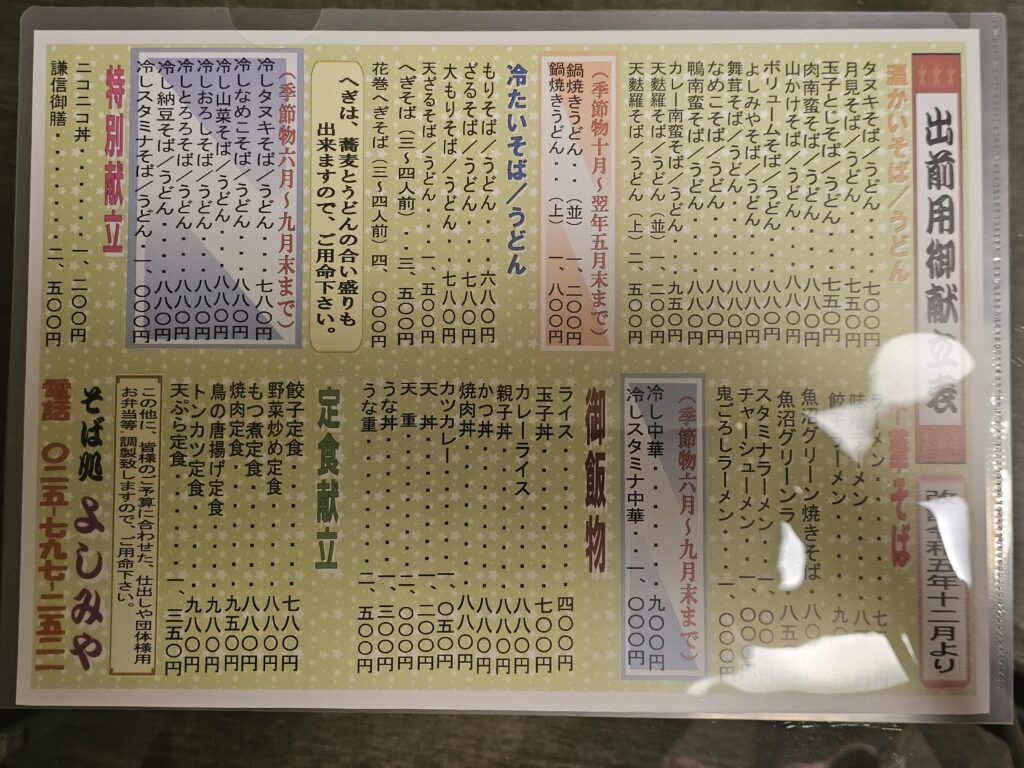 出前用御献立表
令和五年十二月より
温かいそば／うどん
タヌキそば／うどん・・七〇〇円
月見そば／うどん・・七五〇円
玉子とじそば／うどん・七五〇円
肉南蛮そば／うどん・・八八〇円
山かけそば／うどん・・八八〇円
ボリュームそば／うどん・八八〇円
よしみやそば／うどん・八八〇円
舞茸そば／うどん・・・八八〇円
なめこそば／うどん・・八八〇円
鴨南蛮そば／うどん・・八八〇円
カレー南蛮そば／うどん・九五〇円
天麩羅そば／うどん（並）一、二〇〇円
天麩羅そば／うどん（上）二、五〇〇円
（季節物十月～翌年五月末まで）
鍋焼きうどん・・（並）一、二〇〇円
鍋焼きうどん・・（上）一、八〇〇円
冷たいそば／うどん
もりそば／うどん・・・六八〇円
ざるそば／うどん・・・七八〇円
大もりそば／うどん・・七八〇円
天ざるそば／うどん・・一、五〇〇円
へぎそば（三～四人前）・三、五〇〇円
花巻へぎそば（三～四人前）四、〇〇〇円
へぎは、蕎麦とうどんの合い盛りも
出来ますので、ご用命下さい。
（季節物六月～九月末まで）
冷しタヌキそば／うどん・・七八〇円
冷しなめこそば／うどん・・八八〇円
冷し山菜そば／うどん・・・八八〇円
冷しおろしそば／うどん・・八八〇円
冷しとろろそば／うどん・・八八〇円
冷し納豆そば／うどん・・・八八〇円
冷しスタミナそば／うどん・一、〇〇〇円
特別献立
ニコニコ丼・・・・・・一、二〇〇円
謙信御膳・・・・・・・二、五〇〇円
華そば
ラーメン
餃子ラーメン
魚沼グリーン焼きそば・八〇
魚沼グリーンラ
スタミナラーメン・・一
チャーシューメン・・一
鬼ごろしラーメン・・一
（季節物六月～九月末まで）
冷し中華・・・・・・九〇〇円
冷しスタミナ中華・・一、〇〇〇円
御飯物
ライス・・・・・・・四〇〇円
玉子丼・・・・・・・七〇〇円
カレーライス・・・・八八〇円
親子丼・・・・・・・八八〇円
かつ丼・・・・・・・八八〇円
焼肉丼・・・・・・・八八〇円
カツカレー・・・・・一、〇五〇円
天　丼・・・・・・・一、二〇〇円
天　重・・・・・・・二、〇〇〇円
うな丼・・・・・・・一、三〇〇円
うな重・・・・・・・二、五〇〇円
定食献立
餃子定食・・・・・・七八〇円
野菜炒め定食・・・・八八〇円
もつ煮定食・・・・・八八〇円
焼肉定食・・・・・・九五〇円
鳥の唐揚げ定食・・・九八〇円
トンカツ定食・・・・九八〇円
天ぷら定食・・・・・一、三五〇円
この他に、皆様のご予算に合わせた、仕出しや団体様用
お弁当等・調製致しますので、ご用命下さい。
そば処　よしみや
電話　〇二五-七九七-二五二一